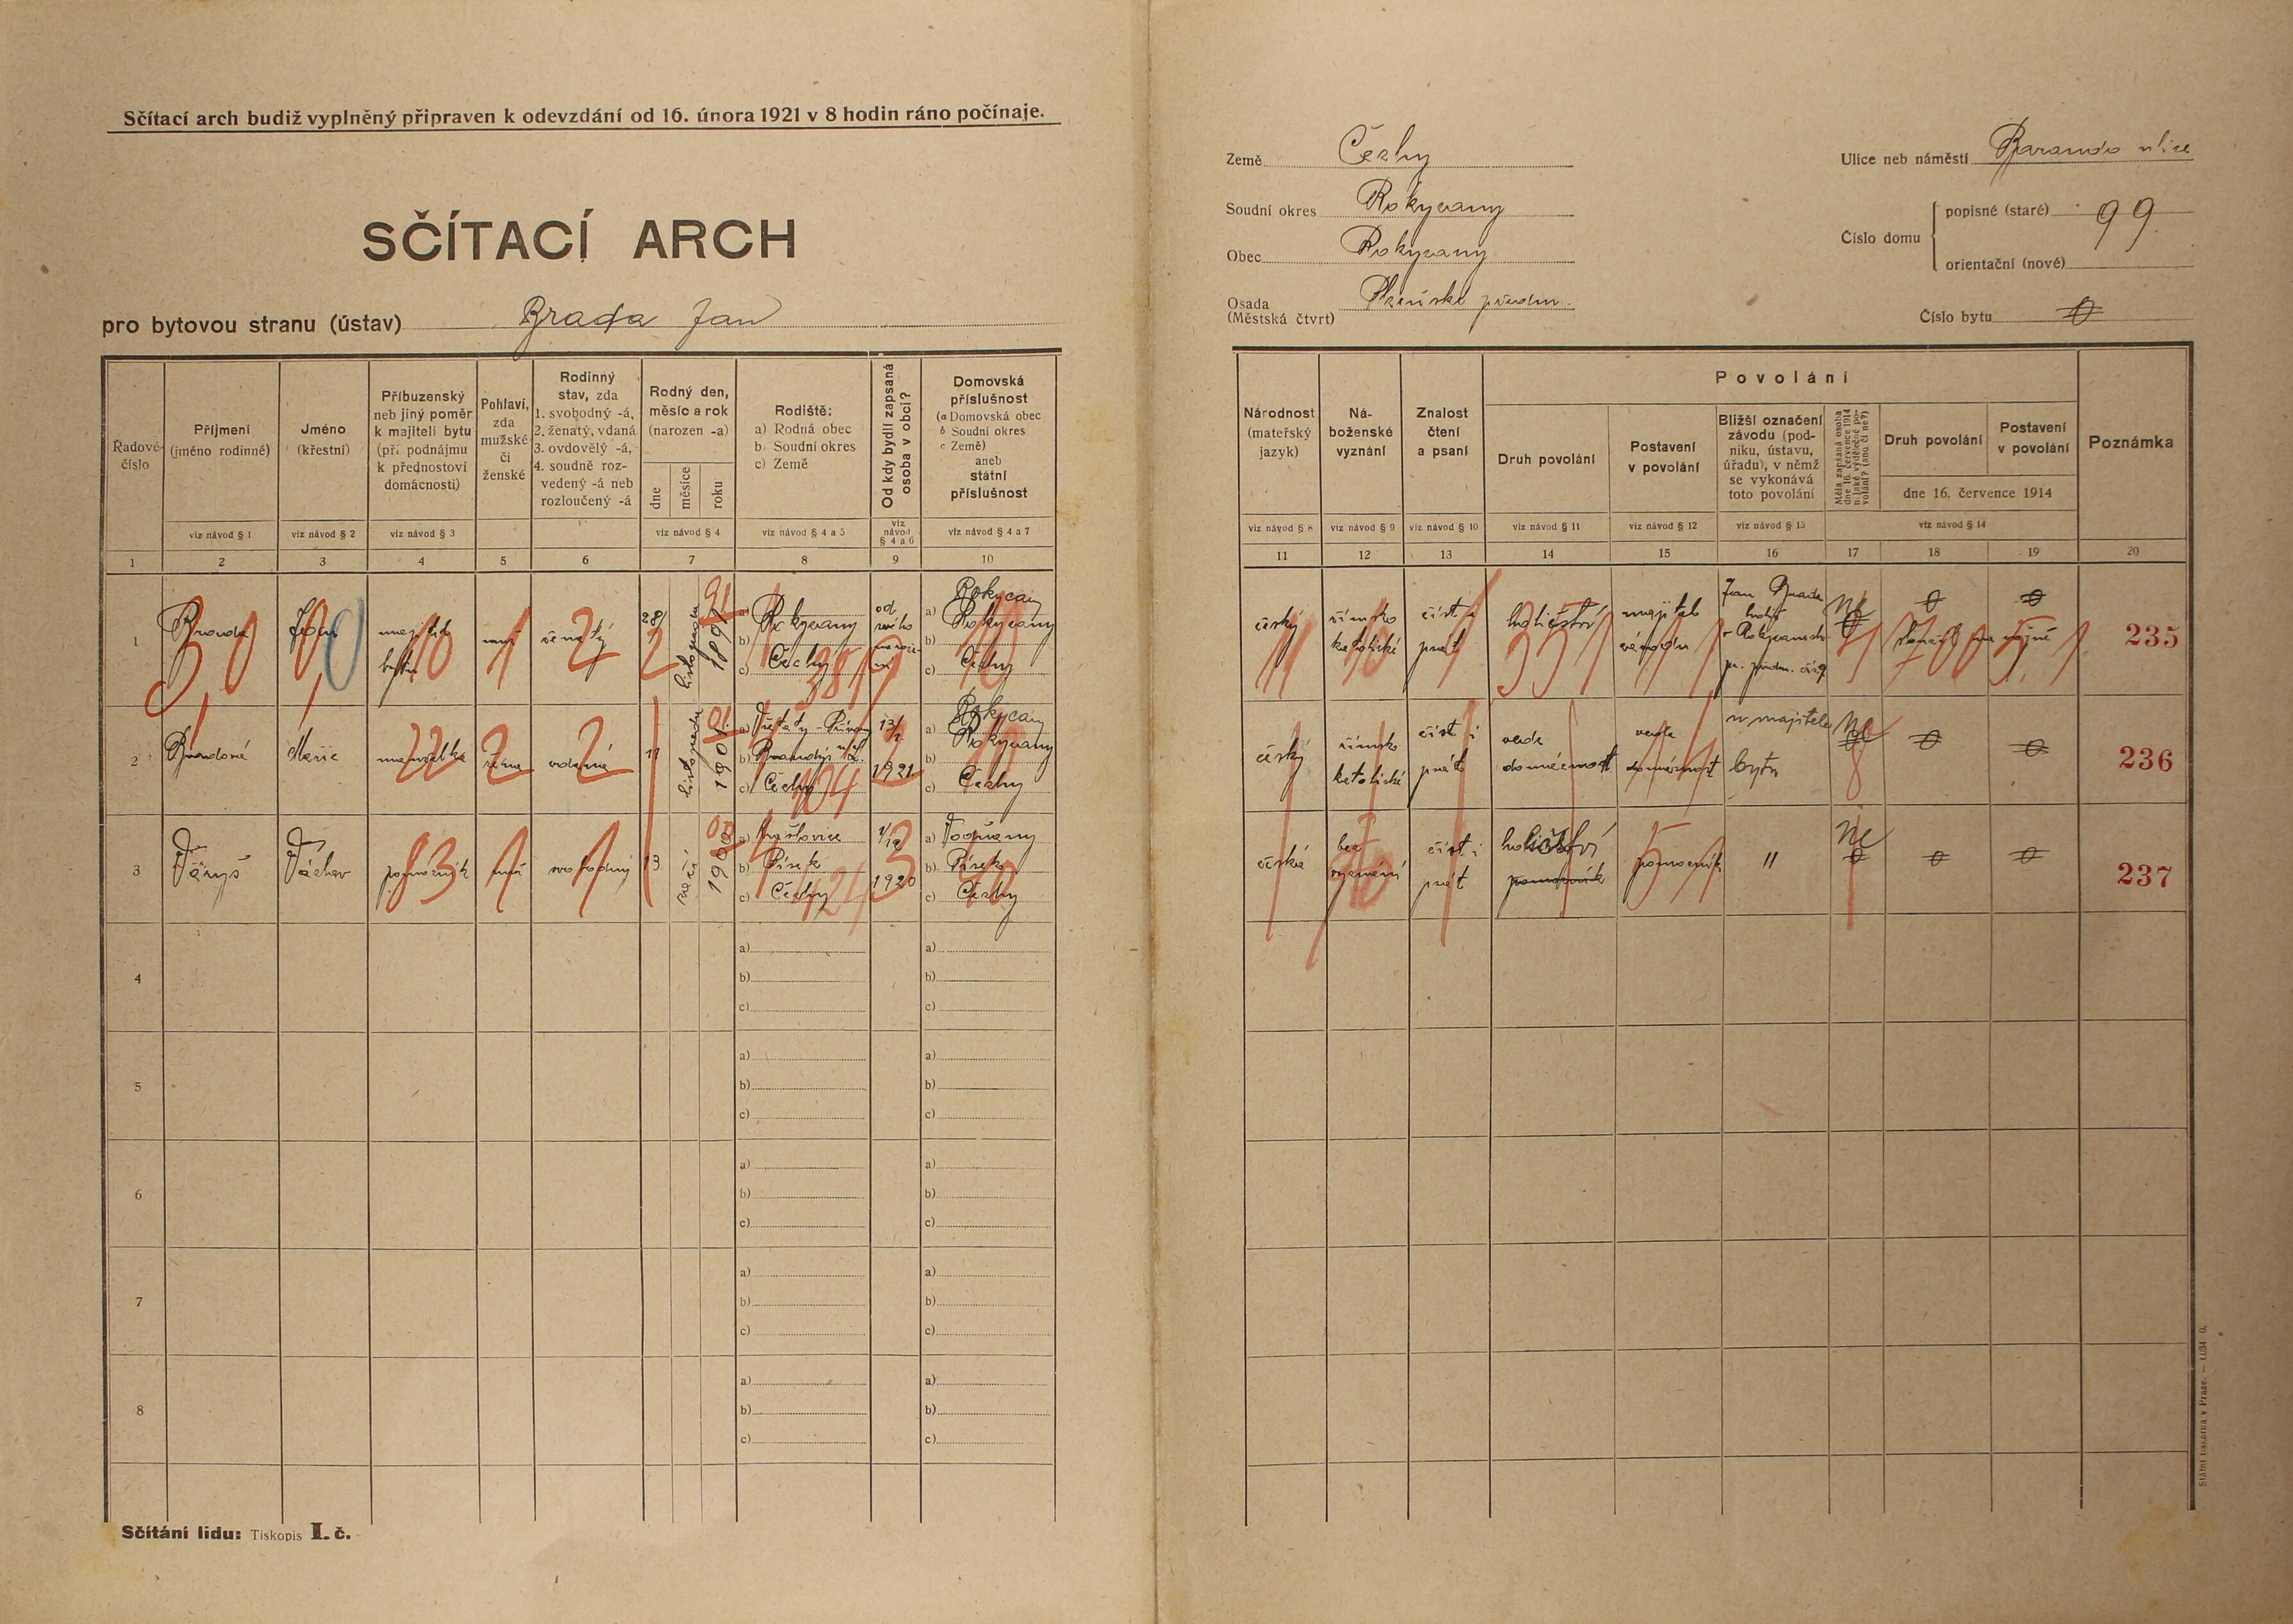 Sčítací arch budiž vyplněný připraven k odevzdání od 16. února 1921 v 8 hodin ráno počínaje.
SČÍTACÍ ARCH
pro bytovou stranu (ústav) Brada Jan
Země Čechy
Soudní okres Rokycany
Obec Rokycany
Osada
(Městská čtvrt) Plzeňské předm.
Ulice neb náměstí ulice
Číslo domu
popisné (staré) 99
orientační (nové)
Číslo bytu 0
Řadové číslo
Příjmení
(jméno rodinné)
viz návod § 1
Jméno
(křestní)
viz návod § 2
Příbuzenský
neb jiný poměr
k majiteli bytu
(při podnájmu
k přednostovi
domácnosti)
viz návod § 3
Pohlaví,
zda
mužské
či
ženské
Rodinný
stav, zda
1. svobodný -á,
2. ženatý, vdaná
3. ovdovělý -á,
4. soudně roz-
vedený -á neb
rozloučený -á
Rodný den,
měsíc a rok
(narozen -a)
dne
měsíce
roku
viz návod § 4
Rodiště:
a) Rodná obec
b) Soudní okres
c) Země
viz návod § 4 a 5
Od kdy bydlí zapsaná
osoba v obci?
viz
návod
§ 4 a 6
Domovská
příslušnost
(a Domovská obec
b Soudní okres
c Země)
aneb
státní
příslušnost
viz návod § 4 a 7
Národnost
(mateřský
jazyk)
viz návod § 8
Ná-
boženské
vyznání
viz návod § 9
Znalost
čtení
a psaní
viz návod § 10
Povolání
Druh povolání
viz návod § 11
Postavení
v povolání
viz návod § 12
Bližší označení
závodu (pod-
niku, ústavu,
úřadu), v němž
se vykonává
toto povolání
viz návod § 13
Měla zapsaná osoba
dne 16. července 1914
n. jaké výdělečné po-
volání? (ano či ne?)
Druh povolání
Postavení
v povolání
dne 16. července 1914
viz návod § 14
Poznámka
1 2 3 4 5 6 7 8 9 10 11 12 13 14 15 16 17 18 19 20
1 Jan majitel bytu muž ženatý 28/ listopadu
a) Rokycany
b)
c) Čechy
od
Rokycany
a) Rokycany
b)
c) Čechy
český římsko katolické číst a psát holičství majitel závodu
Jan
holič
v
Ne 0 0 235
2 Marie manželka žena vdaná 11 listopadu 1901
a)
b) Brandýs n/L.
c) Čechy
13/2 1921
Rokycany
a) Rokycany
b)
c) Čechy
český římsko katolické číst i psát vede domácnost vede domácnost u majitele bytu Ne 0 0 236
3 Václav pomocník muž svobodný 13 září
a)
b) Písek
c) Čechy
1/12 1920
a)
b) Písek
c) Čechy
česká bez vyznání číst i psát holičství pomocník pomocník " Ne 0 0 237
4
a)
b)
c)
a)
b)
c)
5
a)
b)
c)
a)
b)
c)
6
a)
b)
c)
a)
b)
c)
7
a)
b)
c)
a)
b)
c)
8
a)
b)
c)
a)
b)
c)
Sčítání lidu: Tiskopis I. č.
Státní tiskárna v Praze.